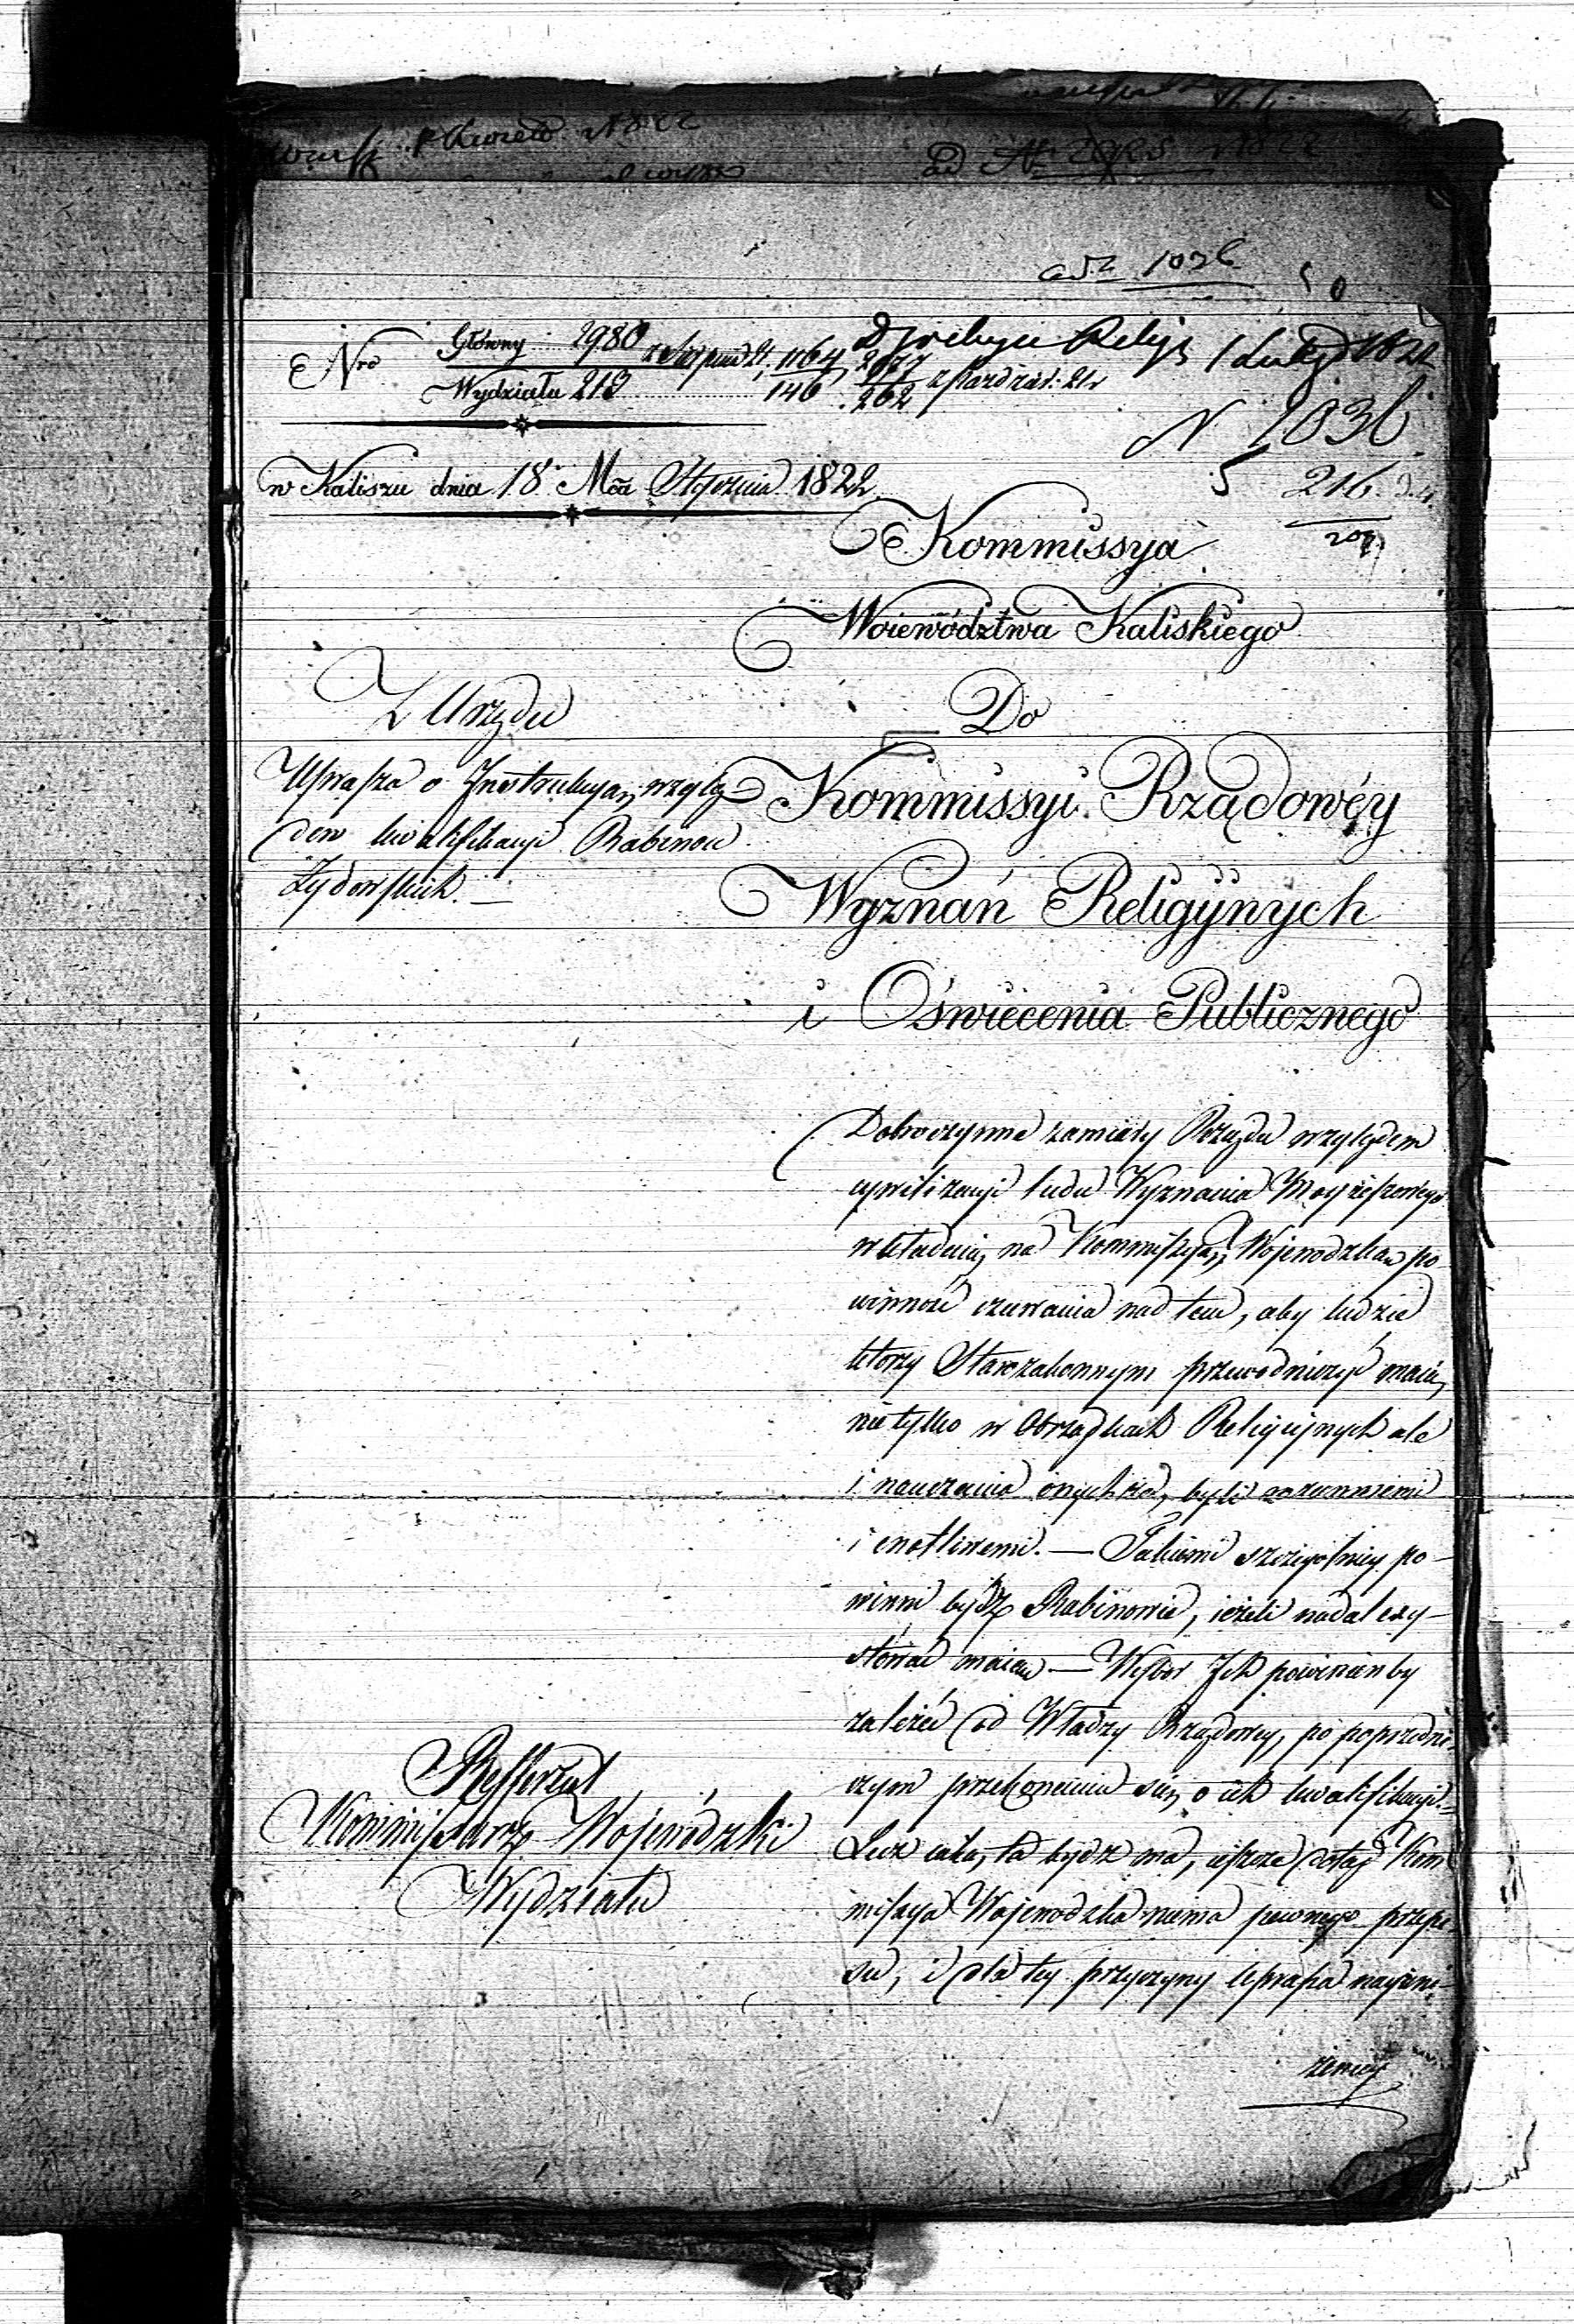 ad N 1036
Nro Główny 2980 1164 2077
Wydziału 213 146 262 z Paździer: 21r
1 Lutego 1822
N 1036
5 216.
w Kaliszu dnia 18 Mca Stycznia 1822
Kommissya
Woiewództwa Kaliskiego
Do
Kommissyi Rządowéy
Wyznań Religyinych
i Oświecenia Publicznego
Z Urzędu
Uprasza o Instrukcyą wzglę
dem kwalifikacyi Rabinow
Żydowskich. —
Dobroczynne zamiary Rządu względem
cywilizacyi ludu Wyznania Moyżeszowego
wkładaią na Kommissyą Wojewodzką po
winność czuwania nad tem, aby ludzie
ktorzy Starozakonnym przewodniczyć maią,
nie tylko w Obrządkach Religijnych ale
i nauczania onychże, byli rozumnemi
i cnotliwemi. — Takiemi szczegolniey po-
winni bydź Rabinowie, ieżeli nadal exy-
stować maią — Wybor Ich powinien by
zależeć od Władzy Rządowey, po poprzedni-
czym przekonaniu się o ich kwalifikacyi.
Lecz iaką ta bydź ma, ieszcze dotąd Kom
missya Wojewodzka niema pewnego przepi
su, i dla tey przyczyny uprasza nayuni-
żeniey
Refferent
Kommissarz Wojewódzki
Wydziału